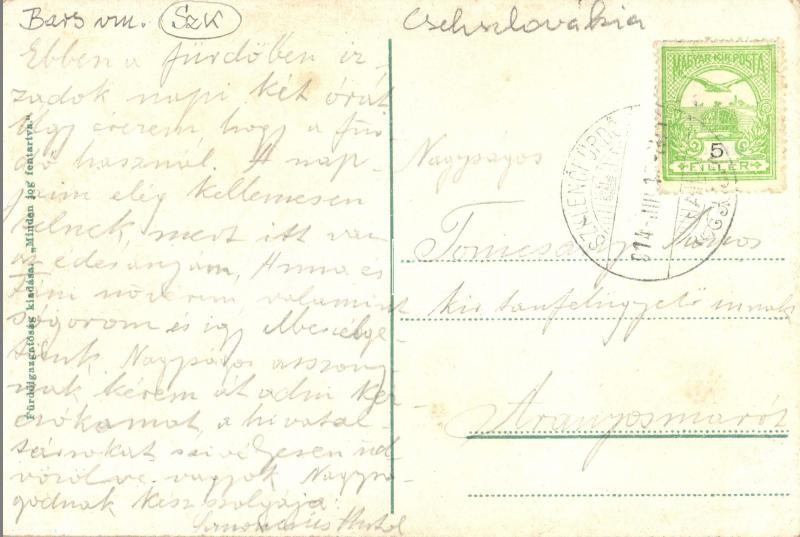 Bars vm. SzK
Csehszlovákia
Ebben a fürdőben iz-
zadok napi két órát
Úgy érzem hogy a für-
dő használ. A nap-
jaim elég kellemesen
telnek, mert itt van
az édesanyám, Anna és
nővérem, valamint
sógorom és így elbeszélge-
tünk. Nagyságos asszony-
nak kérem átadni kéz-
csókomat, a hivatal-
társakat szívélyesen üd-
vözölve vagyok Nagysá-
godnak kész szolgája:
Antal
Fürdőigazgatóság kiadása. „Minden jog fentartva."
MAGYAR KIR. POSTA
5
FILLÉR
914
Nagyságos
János
kir tanfelügyelő urnak
Aranyosmarót